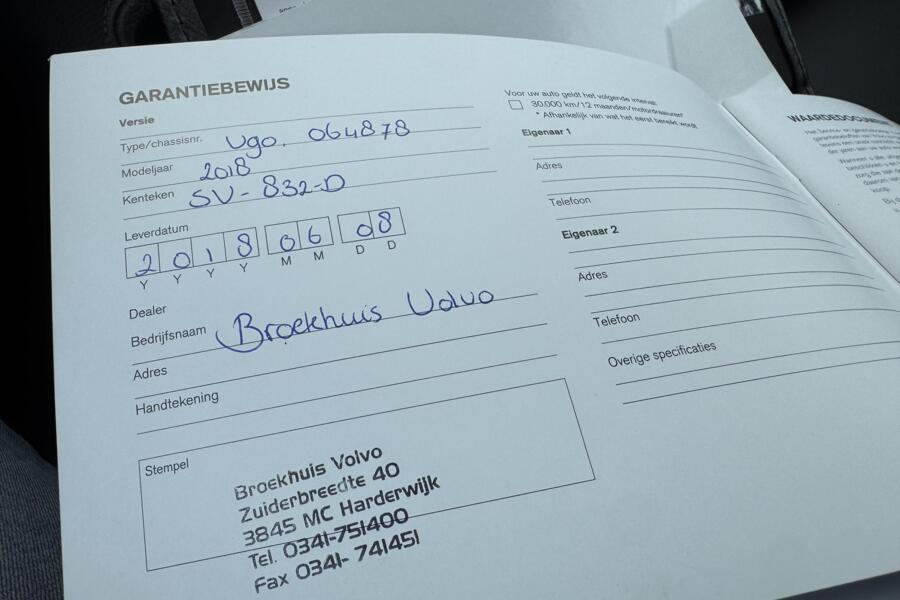 GARANTIEBEWIJS
Versie
Type/chassisnr. Vgo. 064878
Modeljaar 2018
Kenteken SV-832-D
Leverdatum
2018 06 08
Y Y Y Y M M D D
Dealer
Bedrijfsnaam Broekhuis Volvo
Adres
Handtekening
Stempel
Broekhuis Volvo
Zuiderbreedte 40
3845 MC Harderwijk
Tel. 0341-751400
Fax 0341-741451
Voor uw auto geldt het volgende interval:
30.000 km/12 maanden/motordraaiuren*
* Afhankelijk van wat het eerst bereikt wordt
Eigenaar 1
Adres
Telefoon
Eigenaar 2
Adres
Telefoon
Overige specificaties